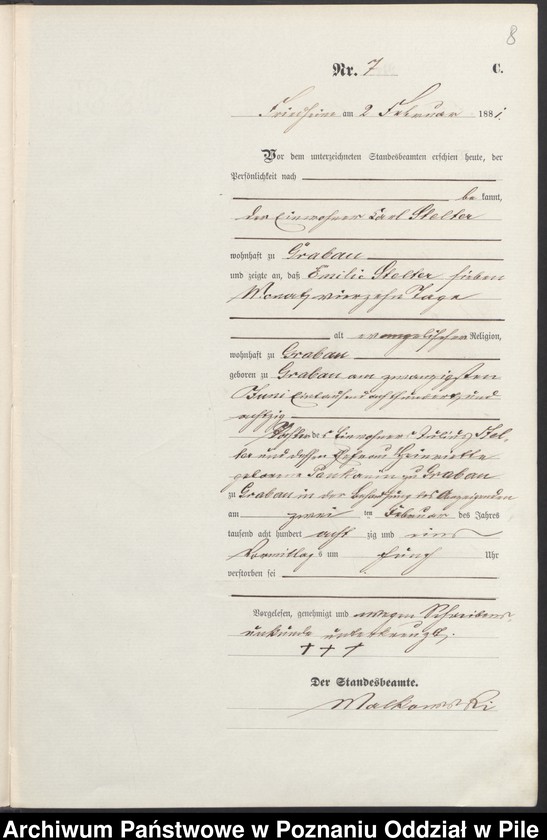 8
Nr. 7 C.
Friedheim am 2 Februar 1881.
Vor dem unterzeichneten Standesbeamten erschien heute, der
Persönlichkeit nach
bekannt,
der Einwohner Karl Stelter
wohnhaft zu Grabau
und zeigte an, daß Emilie Stelter sieben
Monat, vierzehn Tage
alt evangelischer Religion,
wohnhaft zu Grabau
geboren zu Grabau am zwanzigsten
Juni eintausend achthundert und
achtzig
Tochter des Einwohners Julius Stel-
ter und dessen Ehefrau Henriette
geborene zu Grabau
zu Grabau in der Behausung des Anzeigenden
am zwei ten Februar des Jahres
tausend acht hundert acht zig und eins
Vormittags um fünf Uhr
verstorben sei
Vorgelesen, genehmigt und wegen Schreibens-
unkunde unterkreuzt.
+++
Der Standesbeamte.
Malkowski
Archiwum Państwowe w Poznaniu Oddział w Pile